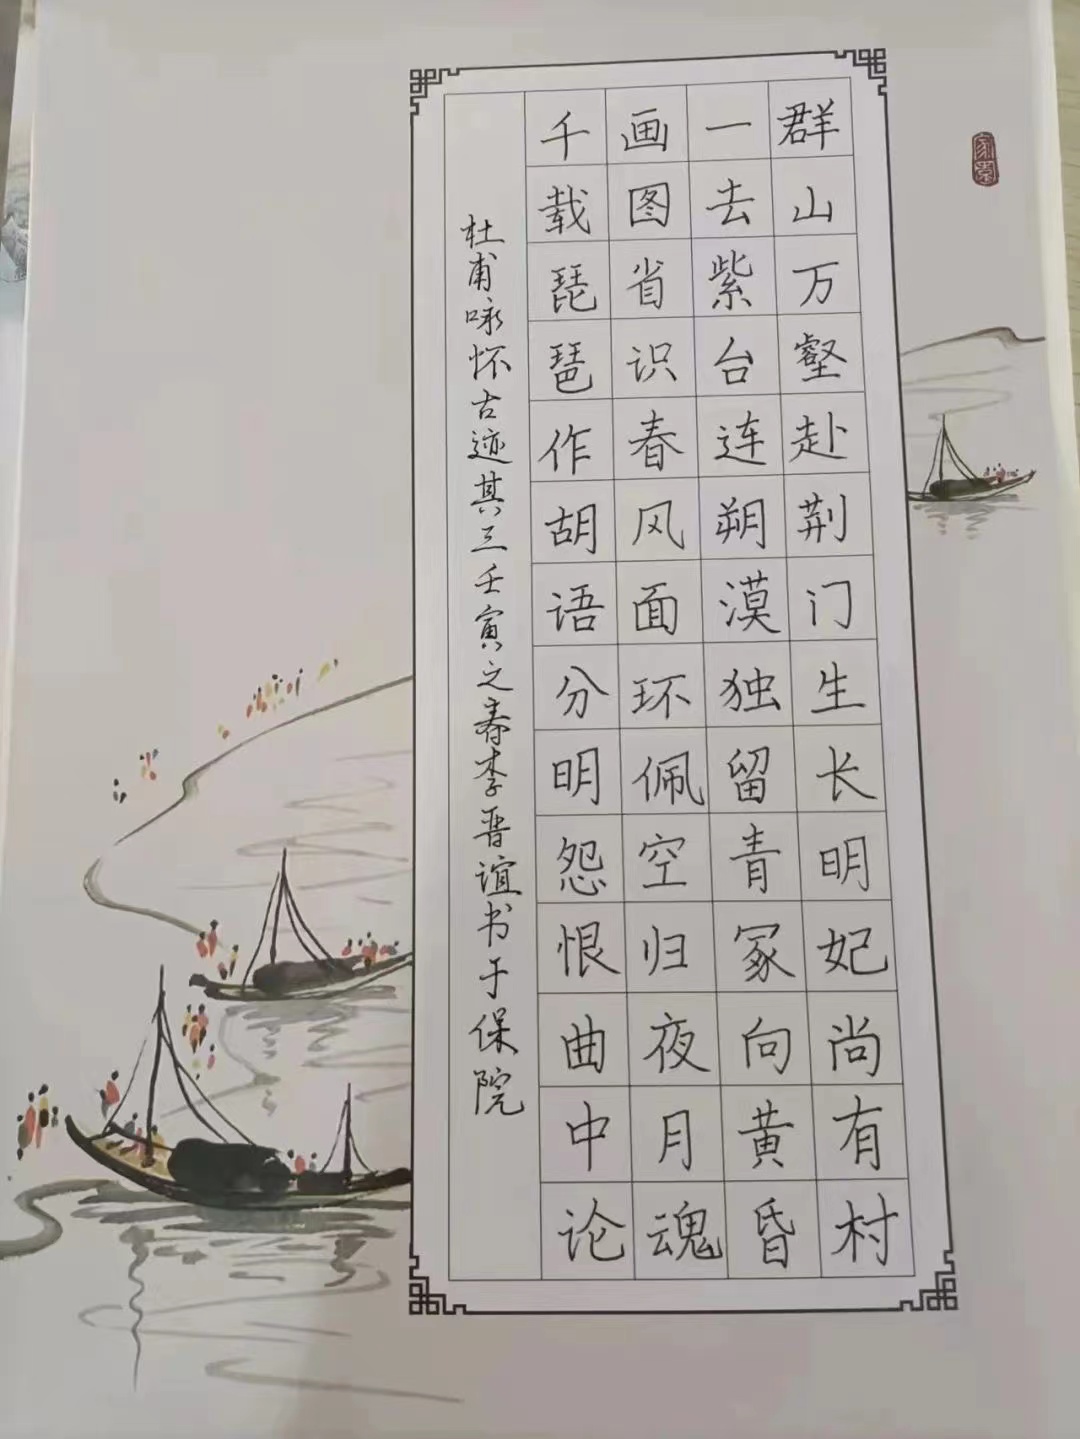 群山万壑赴荆门生长明妃尚有村
一去紫台连朔漠独留青冢向黄昏
画图省识春风面环佩空归夜月魂
千载琵琶作胡语分明怨恨曲中论
杜甫咏怀古迹其三壬寅之春李晋谊书于保院